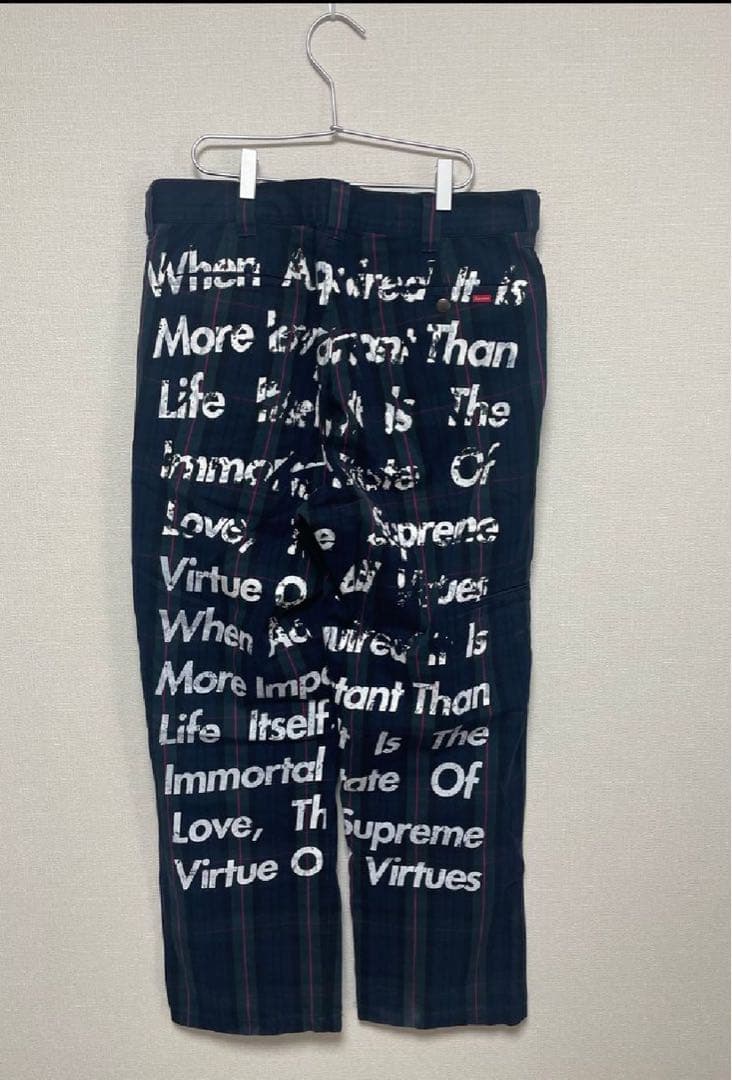 When Aquired It is
More Important Than
Life Itself It Is The
Immortal State Of
Love, The Supreme
Virtue Of All Virtues
When Acquired It Is
More Important Than
Life Itself. It Is The
Immortal tate Of
Love, Th Supreme
Virtue O Virtues